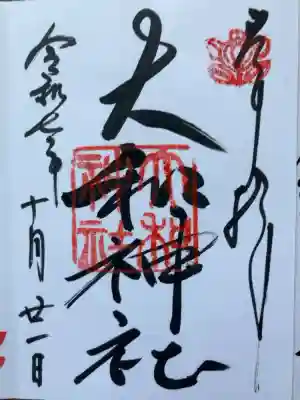 奉拝
大和神社
大和神社
令和七年
十月廿一日